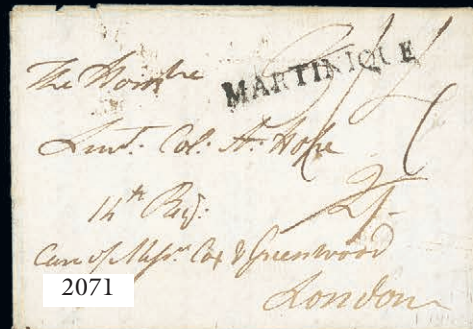 MARTINIQUE
The Honble
Lieut. Col. Ar. Hope
14th Regt.
Care of Messrs Cox & Greenwood
London
2071